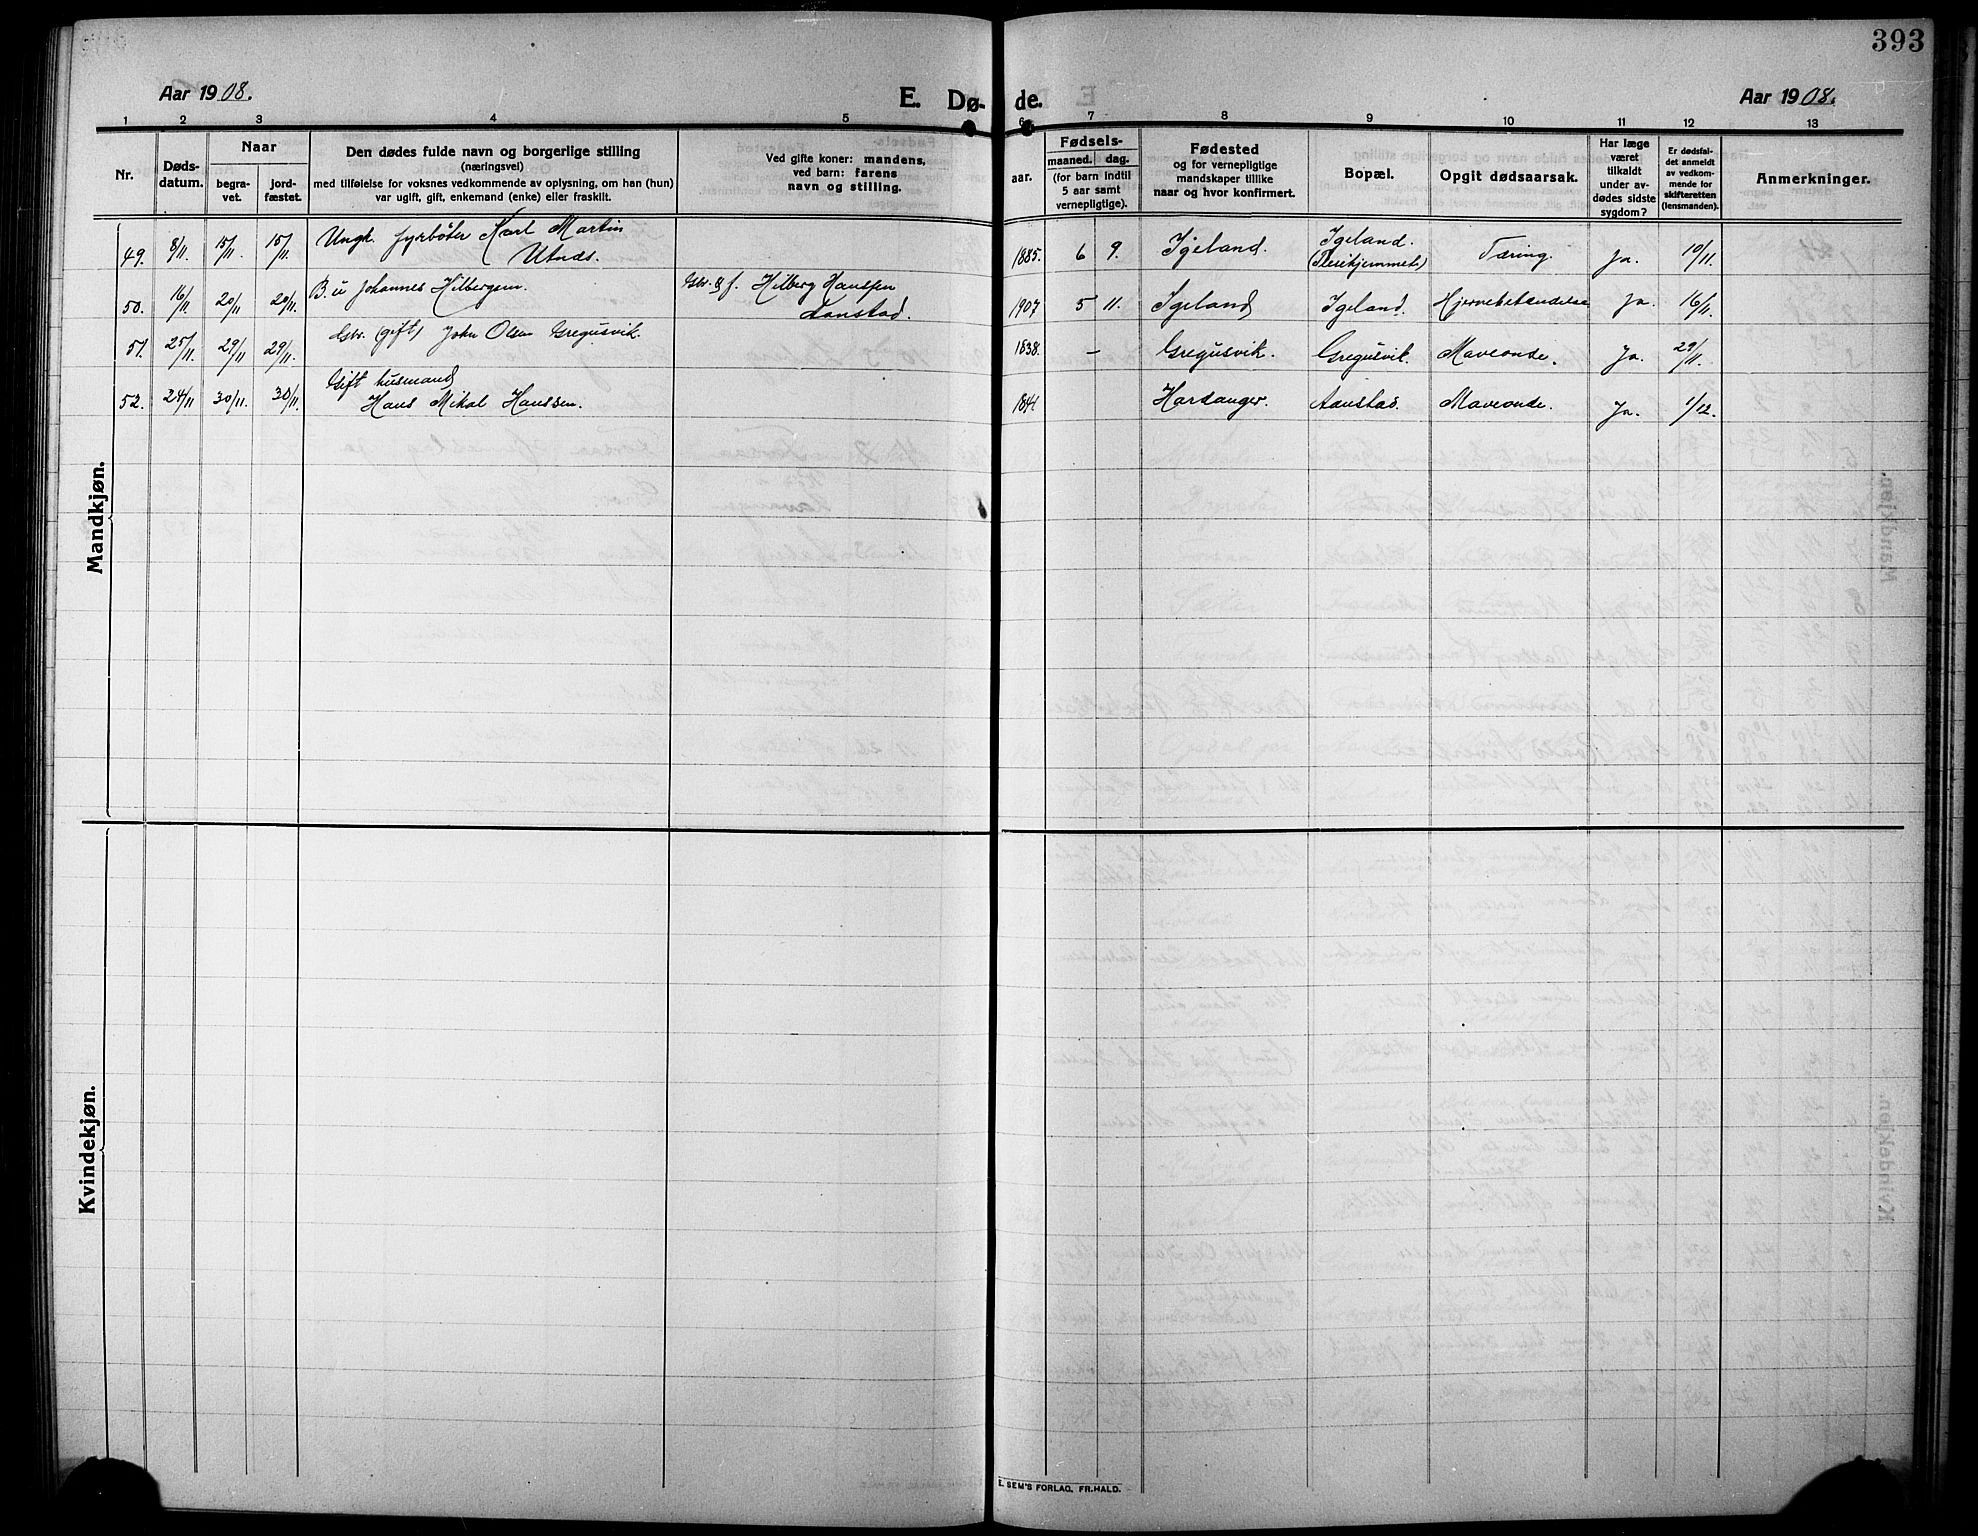 393
Aar 1908.
E. Dø- de.
Aar 1908.
1 2 3 4 5 6 7 8 9 10 11 12 13
Nr.
Døds-
datum.
Naar
begra-
vet.
jord-
fæstet.
Den dødes fulde navn og borgerlige stilling
(næringsvei)
med tilføielse for voksnes vedkommende av oplysning, om han (hun)
var ugift, gift, enkemand (enke) eller fraskilt.
Ved gifte koner: mandens,
ved barn: farens
navn og stilling.
aar.
Fødsels-
maaned. dag.
(for barn indtil
5 aar samt
vernepligtige).
Fødested
og for vernepligtige
mandskaper tillike
naar og hvor konfirmert.
Bopæl.
Opgit dødsaarsak.
Har læge
været
tilkaldt
under av-
dødes sidste
sygdom?
Er dødsfal-
det anmeldt
av vedkom-
mende for
skifteretten
(lensmanden).
Anmerkninger.
Mandkjøn.
49. 8/11 15/11 15/11 Ungk. fyrbøter Karl Martin
Utnæs. 1885. 6 9. Igeland. Igeland.
(Pleiehjemmet) Tæring. Ja. 10/11.
50. 16/11 20/11 20/11 B. u Johannes Hilbergsen. Gbr. & f. Hilberg Hanssen
Aanstad. 1907 5 11. Igeland Igeland. Hjernebetændelse Ja. 16/11.
51. 25/11. 29/11 29/11 Gbr. (gift) John Olsen Gregusvik. 1838. - Gregusvik. Gregusvik. Maveonde. Ja. 29/11.
52. 24/11 30/11. 30/11. Gift husmand
Hans Mikal Hanssen. 1841 Hardanger. Aanstad. Maveonde. Ja. 1/12.
Kvindekjøn.
E. SEM'S FORLAG, FR.HALD.